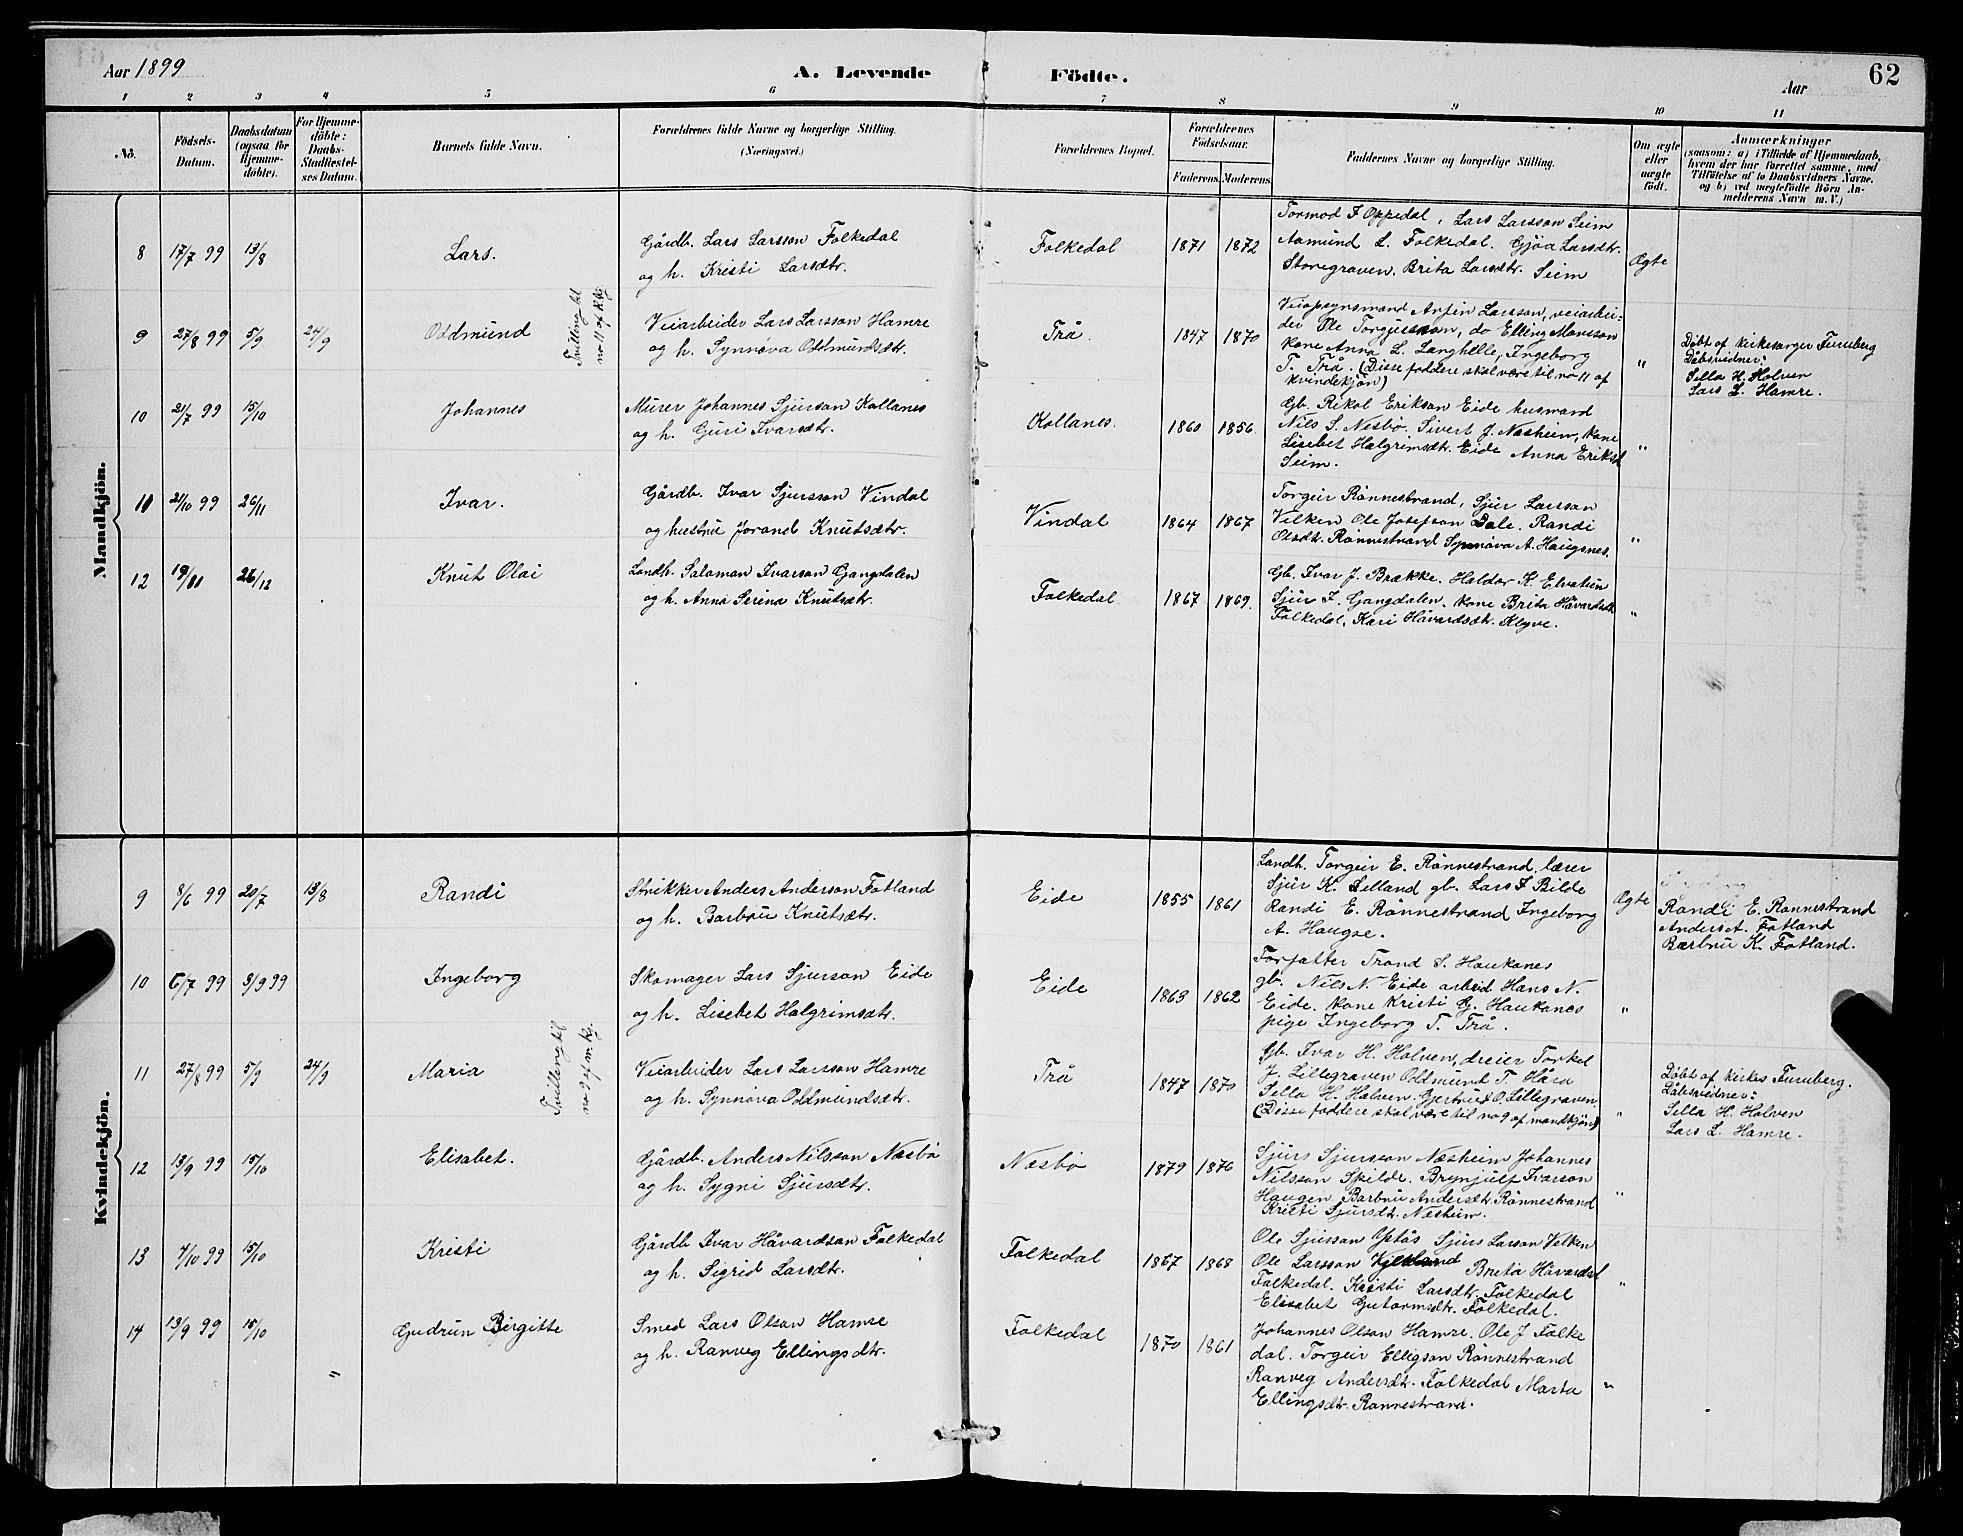 Aar 1899
A. Levende
Födte.
Aar
62
1 2 3 4 5 6 7 8 9 10 11
No.
Födsels-Datum.
Daabsdatum (ogsaa for Hjemme-döbte).
For Hjemme-döbte: Daabs-Stadfæstel-ses Datum.
Barnets fulde Navn.
Forældrenes fulde Navne og borgerlige Stilling. (Næringsvei.)
Forældrenes Bopæl.
Forældrenes Födselsaar.
Faderens. Moderens.
Faddernes Navne og borgerlige Stilling.
Om ægte eller uægte födt.
Anmærkninger
(saasom: a) i Tilfælde af Hjemmedaab,
hvem der har forrettet samme, med
Tilföielse af to Daabsvidners Navne.
og b) ved uægtefödte Börn An-
melderens Navn m. V.)
Mandkjön.
8 17/7 99 13/8 Lars.
Gårdb. Lars Larsson Folkedal
og h. Kristi Larsdtr.
Folkedal 1871 1872
Tormod J Oppedal, Lars Larsson Seim
Aamund L. Folkedal. Gjöa Larsdtr.
Storegraven. Brita Larsdtr. Seim
Ægte
9 27/8 99 5/9 24/9 Oddmund
Tvilling til
no 11 af Kkj.
Veiarbeider Lars Larsson Hamre
og h. Synnöva Oddmundsdtr.
Trå. 1847 1870
Veiopsynsmand Anfin Larsson, veiarbei-
der Ole Torgjersson, do Elling Monsson
Kone Anna L. Langhelle, Ingeborg
T. Trå. (Disse faddere skal være til no 11 af
Kvindekjön)
"
Döbt af Kirkesanger Furuberg
Dåbsvidner:
Sella H. Holven
Lars L. Hamre.
10 21/7 99 15/10 Johannes
Murer Johannes Sjurson Kollanes
og h. Guri Ivarsdtr.
Kollanes. 1860 1856
Gb. Rikol Erikson Eide husmand
Nils S. Nesbö. Sivert J. Næsheim, Kone
Lisebet Halgrimsdtr. Eide Anna Eriksd
Seim.
"
11 21/10 99 26/11 Ivar.
Gårdb. Ivar Sjursson Vindal
og hustru Jorand Knutsdtr.
Vindal 1864 1867
Torgeir Rönnestrand, Sjur Larsson
Velken Ole Josefson Dale. Randi
Olsdtr. Rönnestrand Synnöva A. Haugsnes.
"
12 19/11 26/12 Knut Olai
Landh. Salamon Ivarson Gangdalen
og h. Anna Serina Knutsdtr.
Folkedal 1867 1869.
Gb. Ivar J. Brække. Haldor K. Elvatun
Sjur I. Gangdalen. Kone Brita Håvardsdt
Folkedal. Kari Håvardsdtr. Klyve.
"
Kvindekjön.
9 8/6 99 20/7 13/8 Randi
Strikker Anders Anderson Fotland
og h. Barbru Knutsdtr.
Eide 1855 1861
Landh. Torgeir E. Rönnestrand. lærer
Sjur K. Selland gb. Lars J Bilde
Randi E. Rönnestrand Ingeborg
A. Haugse.
Ægte
Randi E. Rønnestrand
Anders A. Fotland
Barbru K. Fotland.
10 6/7 99 3/9 99 Ingeborg
Skomager Lars Sjurson Eide
og h. Lisebet Halgrimsdtr.
Eide 1863 1862
Forfatter Trond S. Haukanes
gb. Nils N. Eide arbeid Hans N.
Eide. Kone Kristi G. Haukanes
pige Ingeborg T. Trå.
"
11 27/8 99 5/9 24/9 Maria
Tvilling til
no 9 af m. kj.
Veiarbeider Lars Larsson Hamre
og h. Synnöva Oddmundsdtr.
Trå 1847 1870
Gb. Ivar H. Holven, dreier Torkel
J. Lillegraven Oddmund T. Håra
Sella H. Holven. Gjertrud O. Lillegraven
(Disse faddere skal være til no 9 af mandkjön)
"
Döbt af Kirkes Furuberg.
Dåbsvidner:
Sella H. Holven
Lars L. Hamre.
12 13/9 99 15/10 Elisabet.
Gårdb. Anders Nilsson Næsbö
og h. Sygni Sjursdtr.
Næsbö 1879 1876
Sjurs Sjursson Næsheim Johannes
Nilsson Skilde. Brynjulf Ivarson
Haugen Barbru Andersdtr. Rönnestrand
Kristi Sjursdtr. Næsheim.
"
13 4/10 99 15/10 Kristi
Gårdb Ivar Håvardson Folkedal
og h. Sigrid Larsdtr.
Folkedal 1867 1868
Ole Sjursson Opstås Sjurs Larson Velken
Ole Larsson Brita Håvardsd
Folkedal. Kristi Larsdtr. Folkedal
Elisabet Gutormsdtr. Folkedal.
"
14 13/9 99 15/10 Gudrun Birgitte
Smed Lars Olson Hamre
og h. Ranveg Ellingsdtr.
"
Folkedal 1870 1861
Johannes Olson Hamre. Ole J Folke
dal. Torgeir Elligson Rönnestrand
Ranveg Andersdtr. Folkedal Marta
Ellingsdtr. Rönnestrand.
"